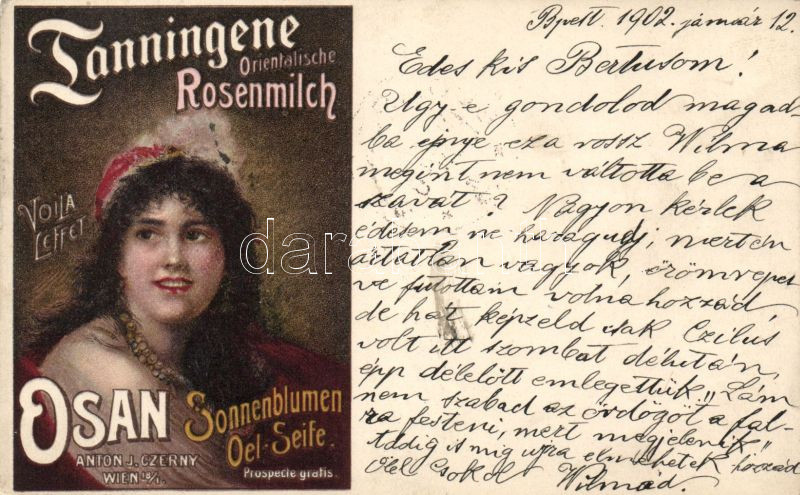 Tanningene
Orientalische
Rosenmilch
VOILA
L'EFFET
OSAN
Sonnenblumen
Oel-Seife.
ANTON J. CZERNY
WIEN 18/1.
Prospecte gratis.
darabanth
Bpest. 1902. január 12.
Edes kis Bertusom!
Ugy-e gondolod magad-
ba ejnye ez a rossz Wilma
megint nem váltotta be a
szavat? Nagyon kérlek
édesem ne haragudj, mert én
artatlan vagyok, örömrepes
ve futottam volna hozzád
de hát képzeld csak Czilus
volt itt szombat délután,
épp délelőtt emlegettük „Lám
nem szabad az ördögöt a fal-
ra festeni, mert megjelenik"
Addig is mig ujra elmehetek hozzád
ölel csokol Wilmád.